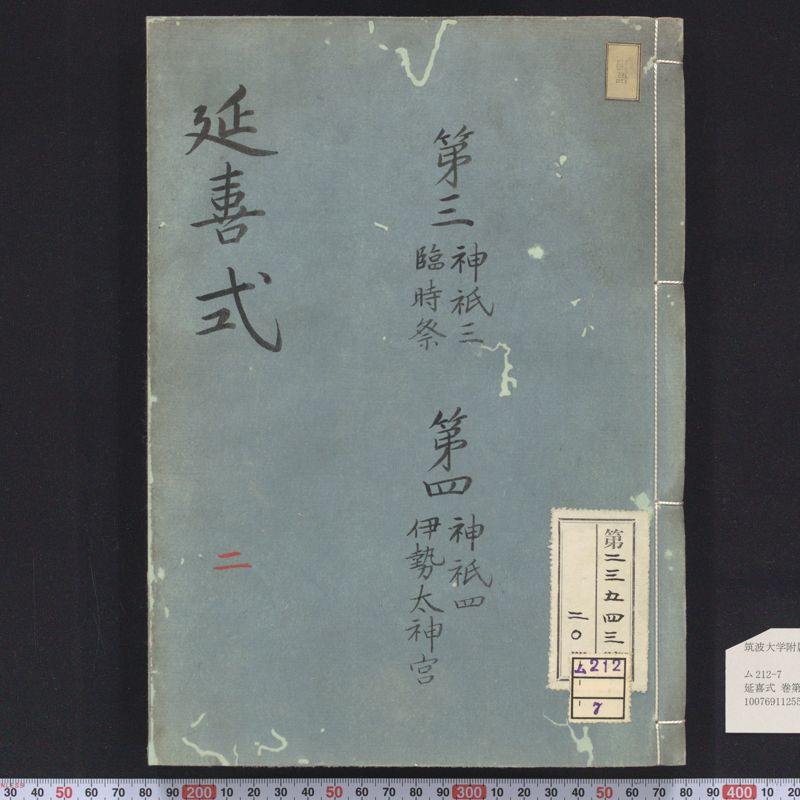 延喜式
二
第三
神祇三
臨時祭
第四
神祇四
伊勢太神宮
国語
第二三五四三號
二〇
ム212
7
筑波大学附属
ム212-7
延喜式 巻第
10076911255
30 40 50 60 70 80 90 200 10 20 30 40 50 60 70 80 90 300 10 20 30 40 50 60 70 80 90 400 10 20